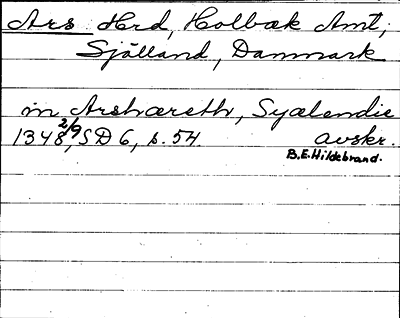 Ars Hrd, Holbæk Amt,
Sjælland, Danmark
in Arshæreth, Syælendie
1348 2/9, SD 6, s. 54. avskr.
B.E. Hildebrand.